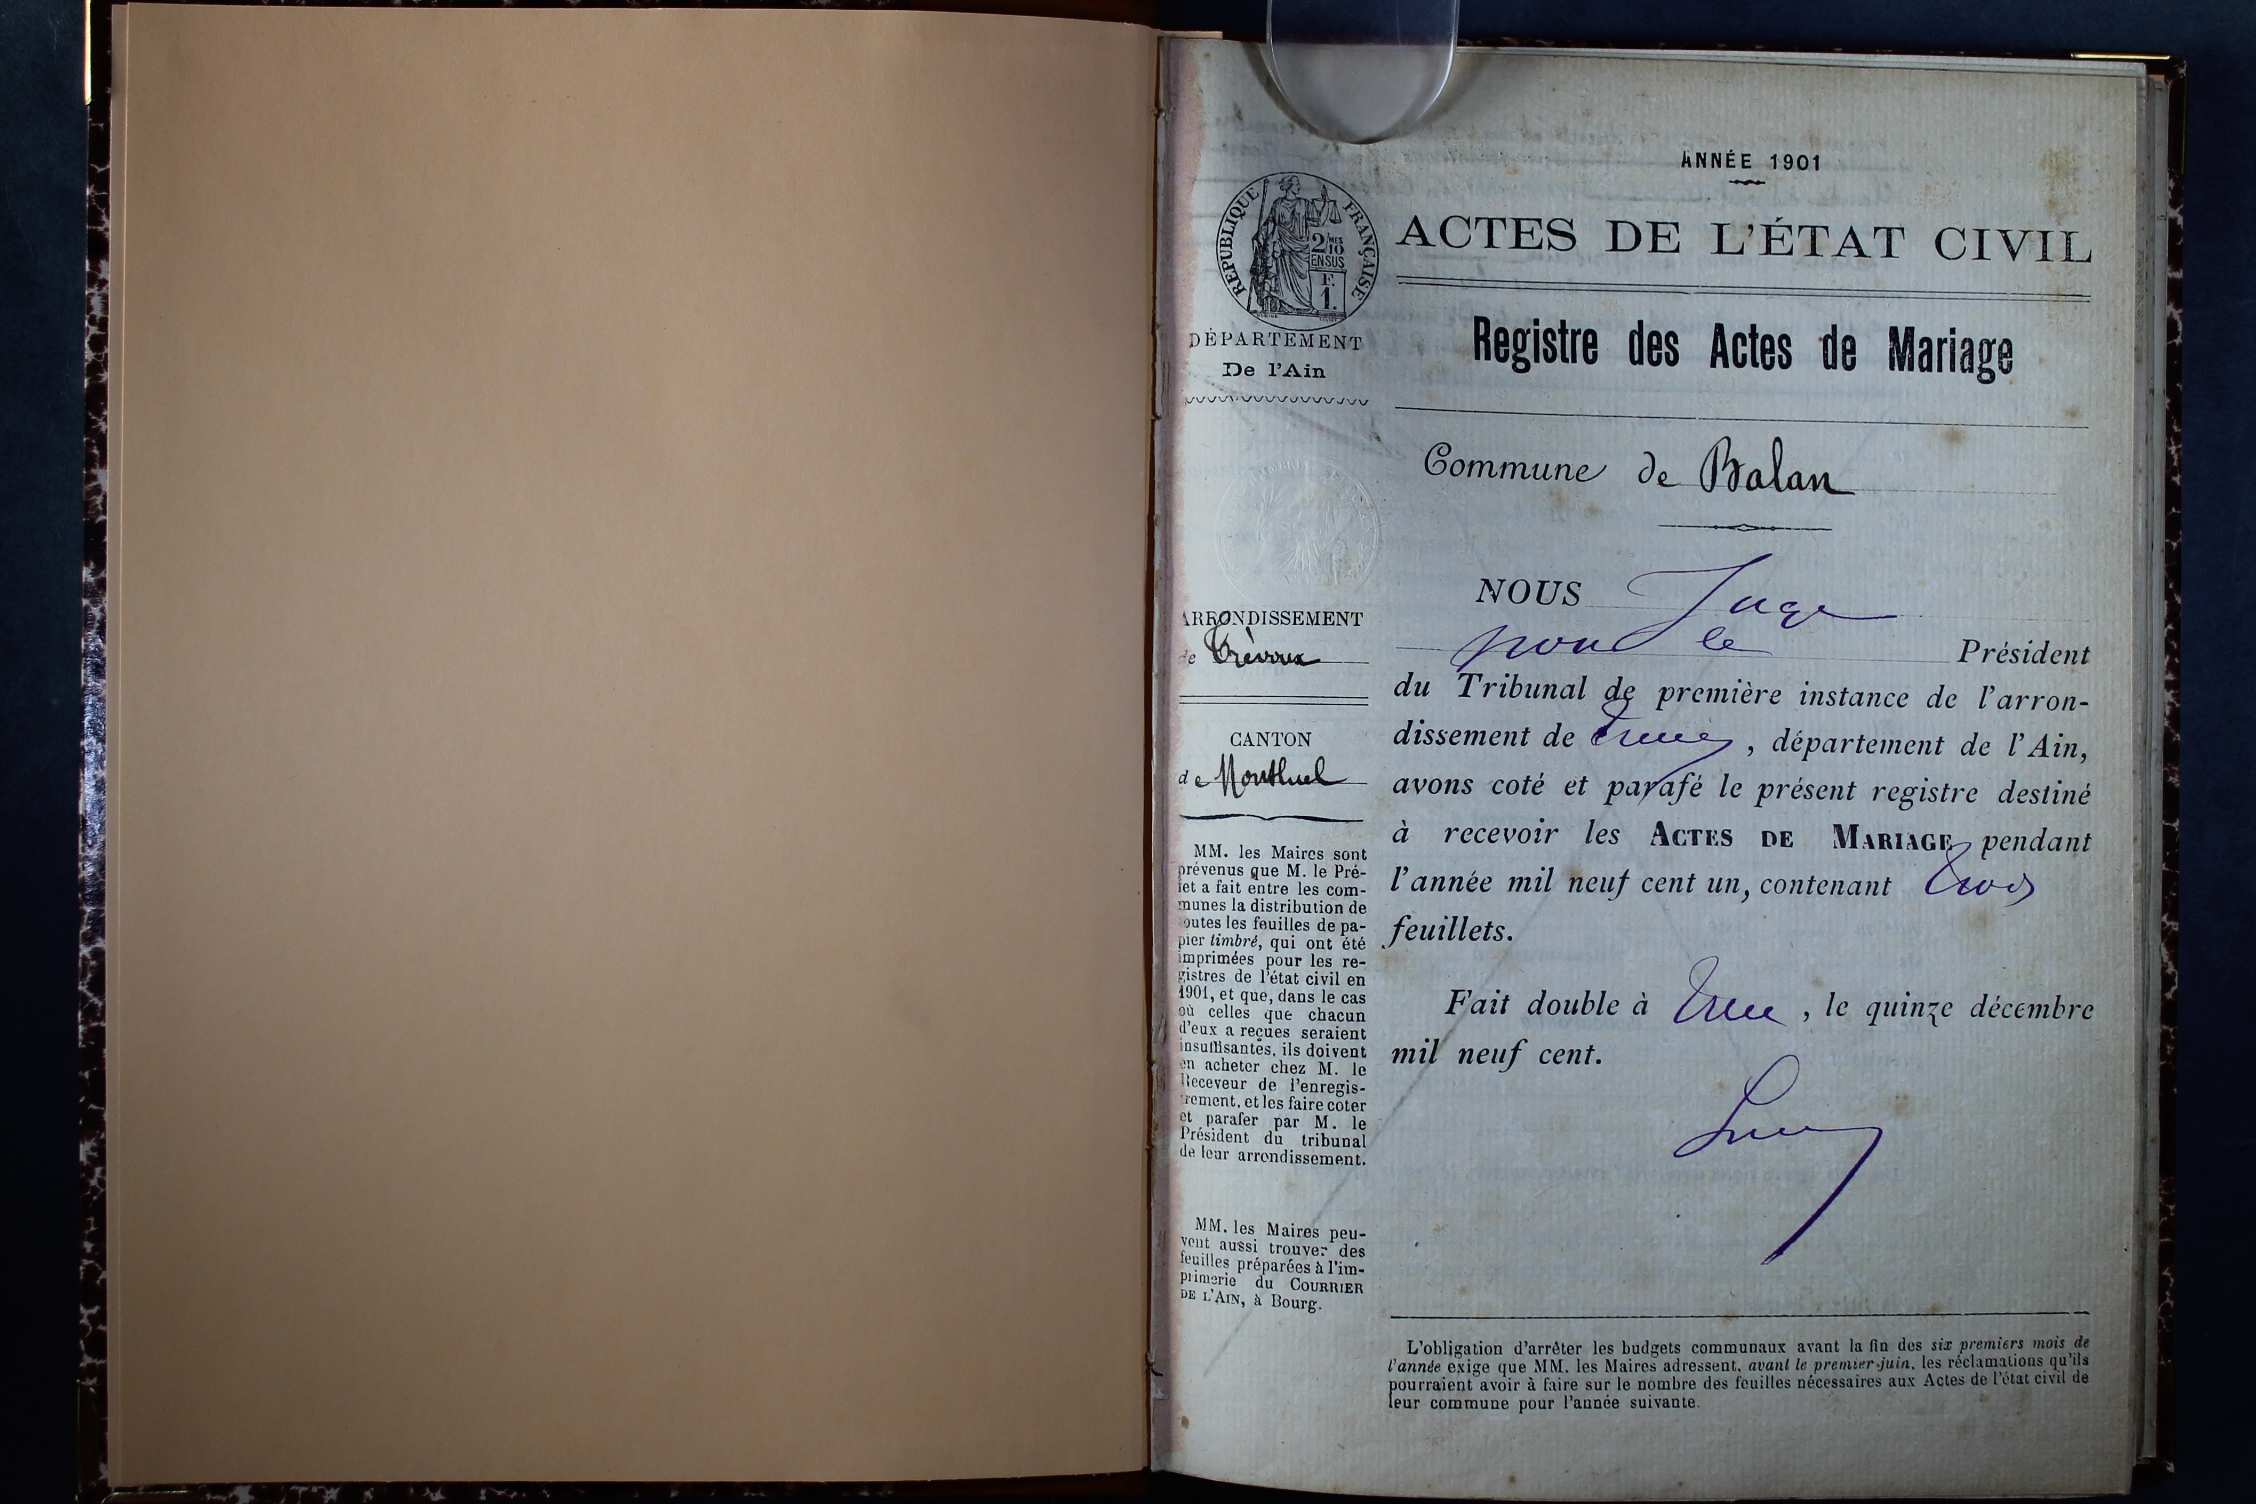 ANNÉE 1901
RÉPUBLIQUE FRANÇAISE
2/10 MES
EN SUS
F.
1.
ACTES DE L'ÉTAT CIVIL
DÉPARTEMENT
De l'Ain
Registre des Actes de Mariage
Commune de Balan
ARRONDISSEMENT
de Trévoux
CANTON
de Montluel
MM. les Maires sont
prévenus que M. le Pré-
fet a fait entre les com-
munes la distribution de
toutes les feuilles de pa-
pier timbré, qui ont été
imprimées pour les re-
gistres de l'état civil en
1901, et que, dans le cas
où celles que chacun
d'eux a reçues seraient
insuffisantes, ils doivent
en acheter chez M. le
Receveur de l'enregis-
trement, et les faire coter
et parafer par M. le
Président du tribunal
de leur arrondissement.
MM. les Maires peu-
vent aussi trouver des
feuilles préparées à l'im-
primerie du COURRIER
DE L'AIN, à Bourg.
NOUS Juge
pour le Président
du Tribunal de première instance de l'arron-
dissement de , département de l'Ain,
avons coté et parafé le présent registre destiné
à recevoir les ACTES DE MARIAGE pendant
l'année mil neuf cent un, contenant trois
feuillets.
Fait double à , le quinze décembre
mil neuf cent.
L'obligation d'arrêter les budgets communaux avant la fin des six premiers mois de
l'année exige que MM. les Maires adressent, avant le premier juin, les réclamations qu'ils
pourraient avoir à faire sur le nombre des feuilles nécessaires aux Actes de l'état civil de
leur commune pour l'année suivante.